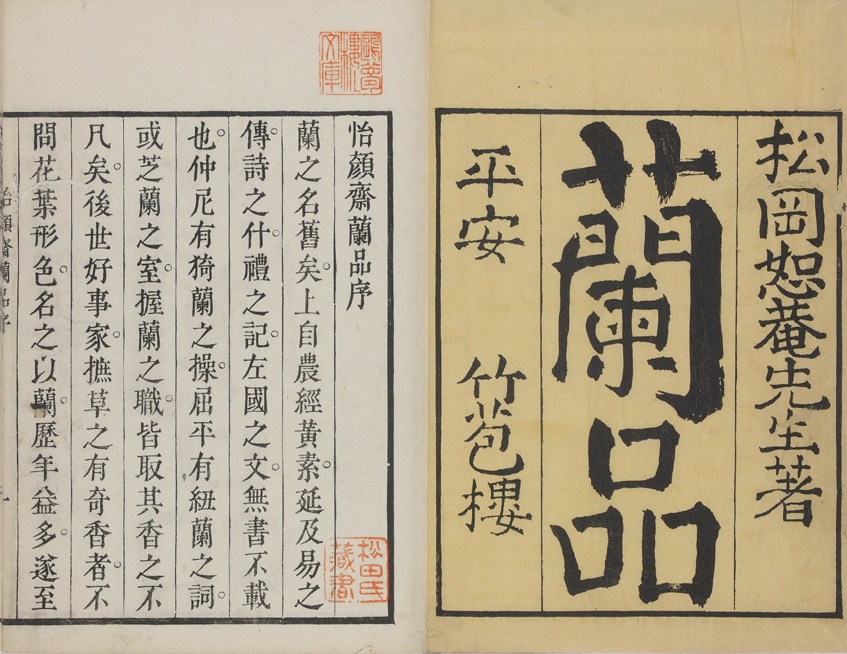 松岡恕菴先生著
蘭品
平安 竹苞樓
怡顏齋蘭品序
蘭之名舊矣。上自農經黃素。延及易之
傳。詩之什。禮之記。左國之文。無書不載
也。仲尼有猗蘭之操。屈平有紐蘭之詞。
或芝蘭之室。握蘭之職。皆取其香之不
凡矣。後世好事家。摭草之有奇香者。不
問花葉形色。名之以蘭。歷年益多。遂至
怡顏齋蘭品序
松田氏
藏書